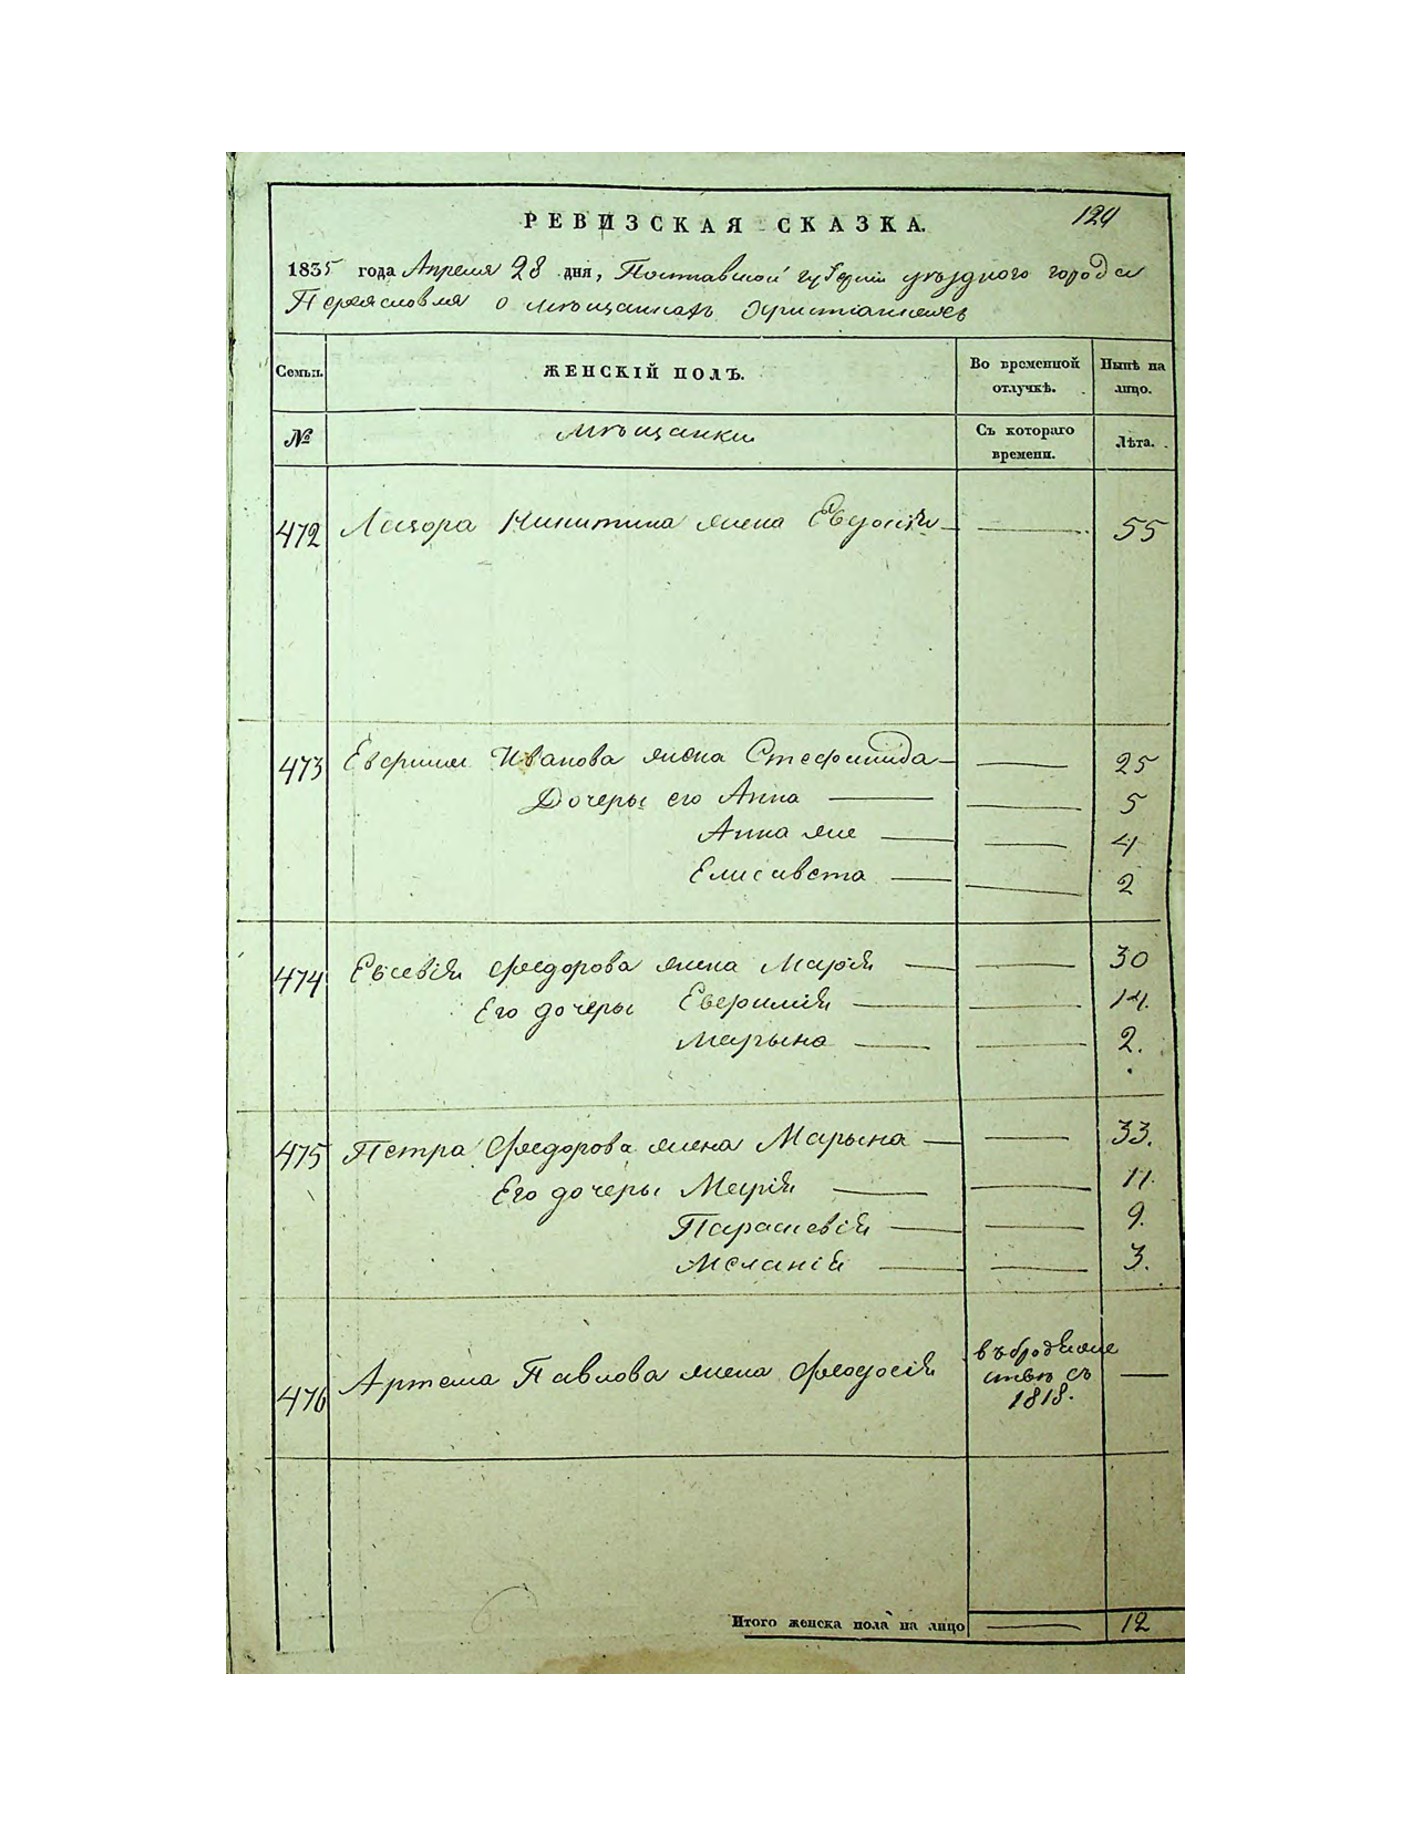 РЕВИЗСКАЯ СКАЗКА.
124
1835 года Апреля 28 дня, Полтавской губернии уѣзднаго города
Переяславля о мѣщанахъ христіанехъ
Семьи.
ЖЕНСКІЙ ПОЛЪ.
Во временной отлучкѣ.
Нынѣ на лицо.
№
Мѣщанки
Съ котораго времени.
Лѣта.
472 Лазора Никитина жена Евдокія — — 55
473 Евфима Иванова жена Стефанида — — 25
Дочеры его Анна — — 5
Анна же — — 4
Елисавета — — 2
474 Евсевія Федорова жена Марія — — 30
Его дочеры Евфимія — — 14.
Марына — — 2.
475 Петра Федорова жена Марына — — 33.
Его дочеры Марія — — 11.
Параскевія — — 9.
Меланія — — 3.
476 Артема Павлова жена Феодосія
въ бродяже
ствѣ съ
1818. —
Итого женска пола на лицо — 12